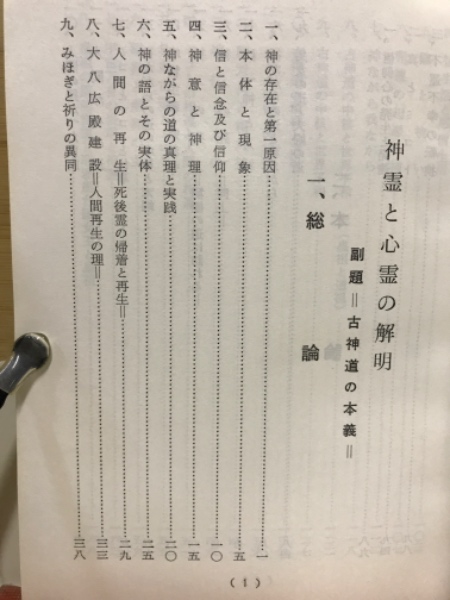 神霊と心霊の解明
副題＝古神道の本義＝
一、総論
一、神の存在と第一原因…………一
二、本体と現象…………五
三、信と信念及び信仰…………一〇
四、神意と神理…………一五
五、神ながらの道の真理と実践…………二〇
六、神の語とその実体…………二五
七、人間の再生＝死後霊の帰着と再生＝…………二九
八、大八広殿建設＝人間再生の理＝…………三三
九、みほぎと祈りの異同…………三八
(1)